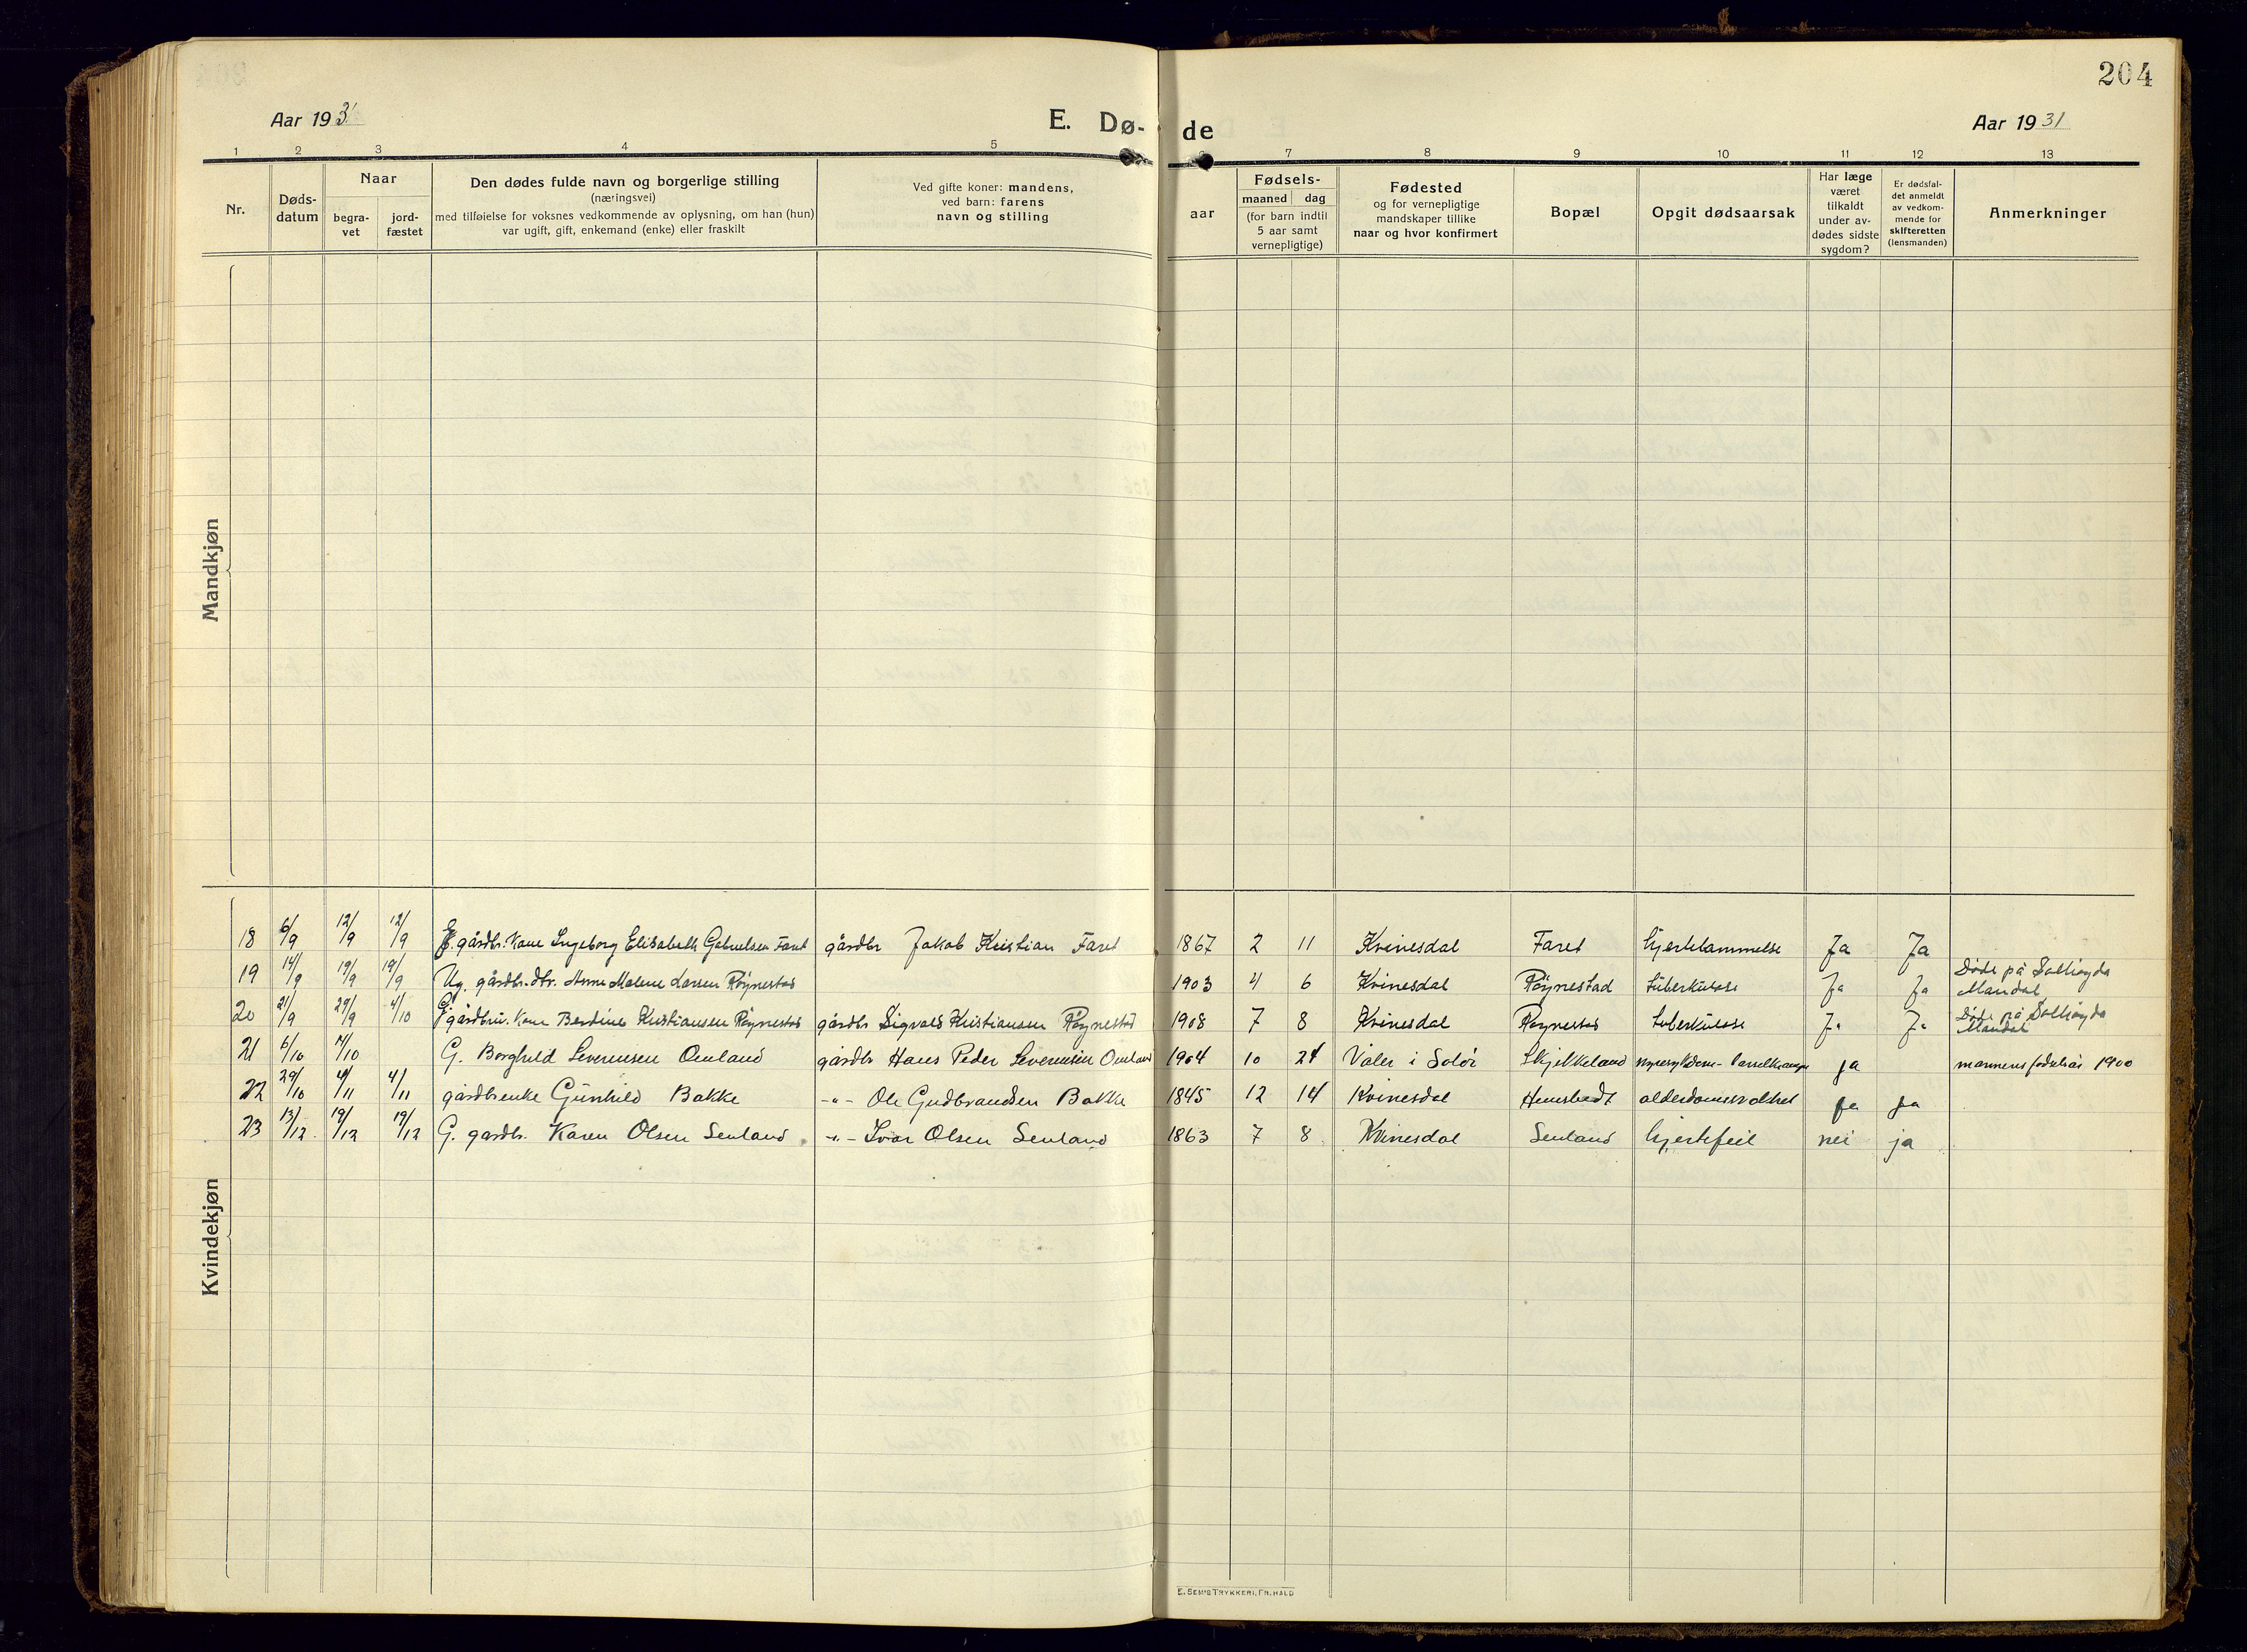 204
Aar 1931
E. Dø-
de
Aar 1931
1 2 3 4 5 7 8 9 10 11 12 13
Nr.
Døds-
datum
Naar
begra-
vet
jord-
fæstet
Den dødes fulde navn og borgerlige stilling
(næringsvei)
med tilføielse for voksnes vedkommende av oplysning, om han (hun)
var ugift, gift, enkemand (enke) eller fraskilt
Ved gifte koner: mandens,
ved barn: farens
navn og stilling
aar
Fødsels-
maaned dag
(for barn indtil
5 aar samt
vernepligtige)
Fødested
og for vernepligtige
mandskaper tillike
naar og hvor konfirmert
Bopæl
Opgit dødsaarsak
Har læge
været
tilkaldt
under av-
dødes sidste
sygdom?
Er dødsfal-
det anmeldt
av vedkom-
mende for
skifteretten
(lensmanden)
Anmerkninger
Mandkjøn
Kvindekjøn
18 6/9 12/9 12/9 gårdbr. kone Ingeborg Elisabeth Gabrielsen Faret gårdbr Jakob Kristian Faret 1867 2 11 Kvinesdal Faret hjertelammelse Ja Ja
19 14/9 19/9 19/9 Ug. gårdbr. dtr. Anne Malene Larsen Röynestad 1903 4 6 Kvinesdal Röynestad tuberkulose Ja Ja Døde på Solhøgda
Mandal
20 21/9 29/9 4/10 G. gårdbru. kone Berdine Kristiansen Röynestad gårdbr Sigvald Kristiansen Röynestad 1908 7 8 Kvinesdal Röynestad tuberkulose Ja Ja Døde på Solhøgda
Mandal
21 6/10 /10 G. Borghild Severinsen Omland gårdbr Hans Peder Severinsen Omland 1904 10 24 Våler i Solör Skjekkeland nyresykdom - ja mannens fødselsår 1900
22 29/10 4/11 4/11 gårdbrenke Gunhild Bakke -"- Ole Gudbrandsen Bakke 1845 12 14 Kvinesdal alderdomssvakhet ja ja
23 13/12 19/12 19/12 G. gardbr. Karen Olsen Senland -"- Ivar Olsen Senland 1863 7 8 Kvinesdal Senland hjertefeil nei ja
E. SEMS TRYKKERI, FR. HALD